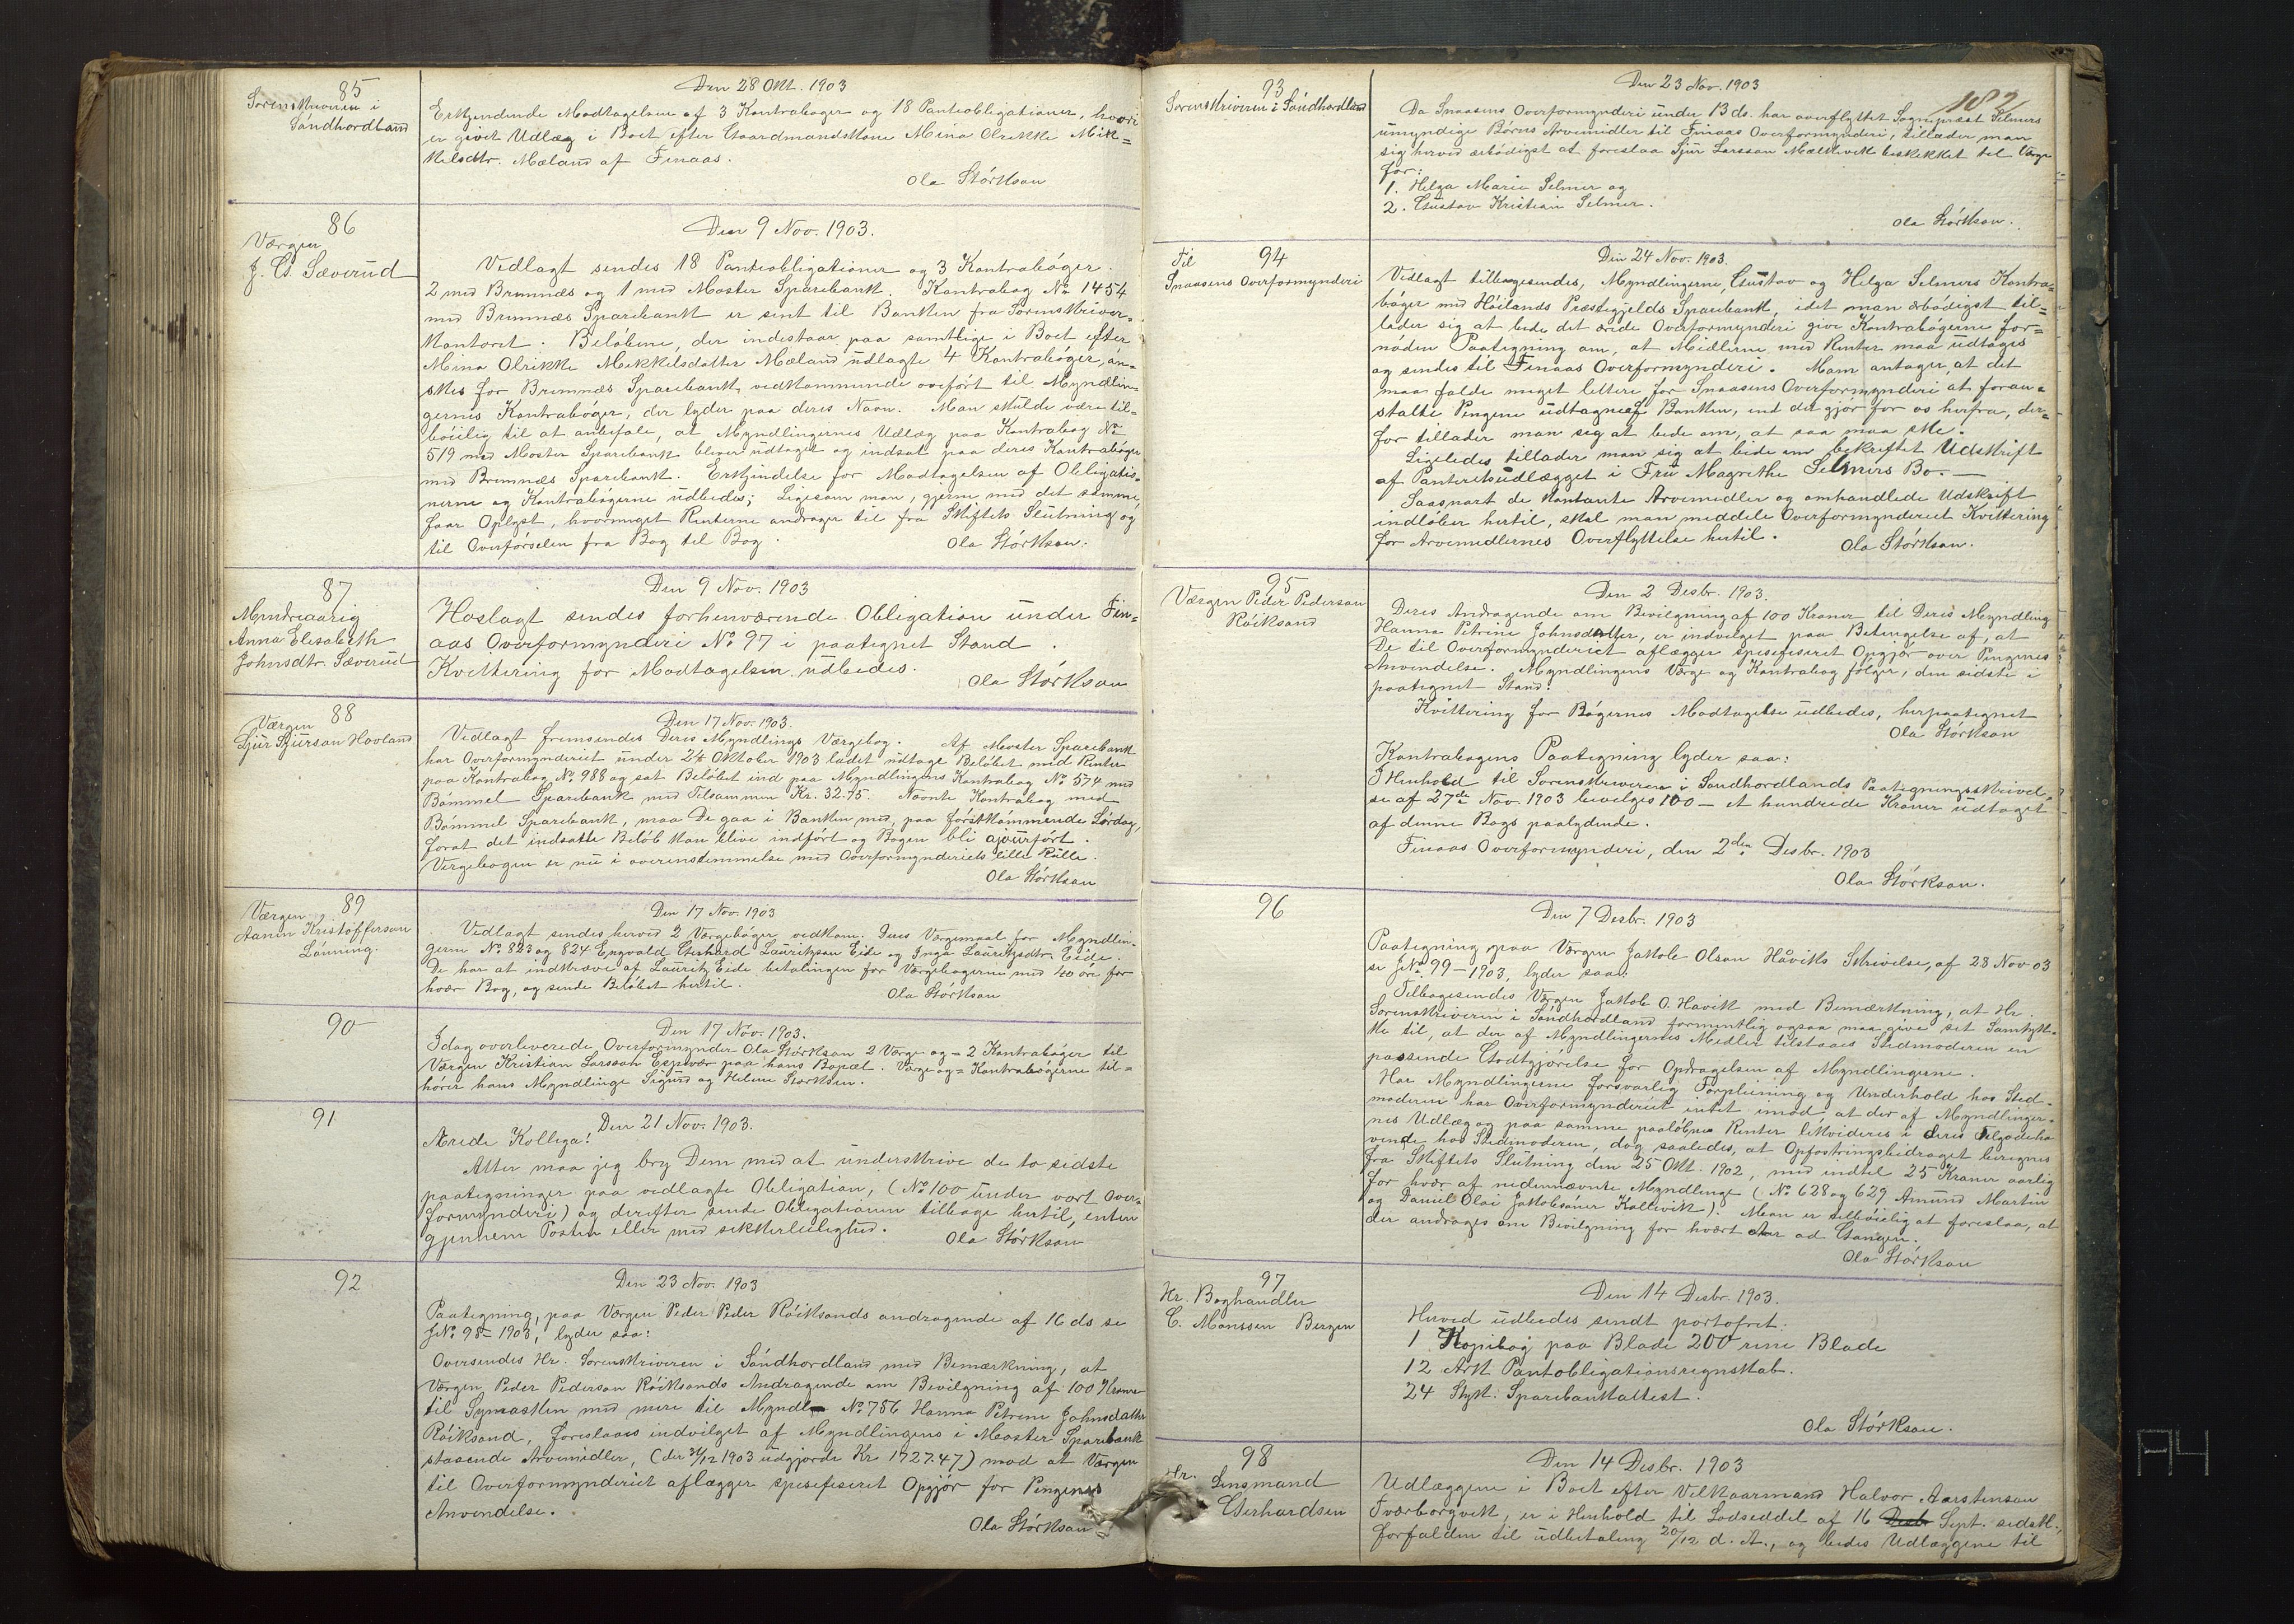 85
Sorenskriveren i
Söndhordland
Den 28 Okt. 1903
Erkjendende Modtagelsen af 3 Kontrabøger og 18 Panteobligationer, hvori
er givet Udlæg i Boet efter Gaardmandskone Mina Olrikke Mik=
kelsdtr. Mæland af Finaas.
Ola Störkson
86
Værgen
J. G. Sæverud
Den 9 Nov. 1903.
Vedlagt sendes 18 Panteobligationer og 3 Kontrabøger.
2 med Bremnæs og 1 med Moster Sparebank. Kontrabog No 1454
med Bremnæs Sparebank er sent til Banken fra Sorenskriver=
kontoret. Beløbene, der indestaar paa samtlige i Boet efter
Mina Olrikke Mekkelsdatter Mæland udlagte 4 Kontrabøger, øn=
skes for Bremnæs Sparebank vedkommende overført til Myndlin=
gernes Kontrabøger, der lyder paa deres Navn. Man skulde være til=
bøielig til at anbefale, at Myndlingernes Udlæg paa Kontrabog No
519 med Moster Sparebank bliver udtaget og indsat paa deres Kontrabøger
med Bremnæs Sparebank. Erkjendelse for Modtagelsen af Obligatio=
nerne og Kontrabøgerne udbedes; Ligesom man, gjerne med det samme,
faar Oplyst, hvormeget Renterne andrager til fra Skiftets Slutning og
til Overførselen fra Bog til Bog.
Ola Störkson.
87
Myndreaarig
Anna Elisabeth
Johnsdtr. Sæverud
Den 9 Nov. 1903
Hoslagt sendes forhenværende Obligation under Fin=
aas Overformynderi No 97 i paategnet Stand.
Kvittering for Modtagelsen udbedes.
Ola Störkson
88
Værgen
Sjur Sjurson Hovland
Den 17 Nov. 1903.
Vedlagt fremsendes Deres Myndlings Værgebog. Af Moster Sparebank
har Overformynderiet under 24 Oktober 1903 ladet udtage Beløbet med Renter
paa Kontrabog No 988 og sat Beløbet ind paa Myndlingens Kontrabog No 574 med
Bømmel Sparebank med Tilsammen Kr. 32.75. Nævnte Kontrabog med
Bømmel Sparebank, maa De gaa i Banken med, paa förstkommende Lördag,
forat det indsatte Beløb kan blive indført og Bogen bli ajourført.
Værgebogen er nu i overensstemmelse med Overformynderiets lille Rulle.
Ola Störkson
89
Værgen
Aanen Kristofferson
Lönning.
Den 17 Nov. 1903
Vedlagt sendes herved 2 Værgebøger vedkom. Jeres Værgemaal for Myndlin=
gerne No 823 og 824 Engvald Gerhard Lauritzson Eide og Inga Lauritzsdtr. Eide.
De har at indkræve af Lauritz Eide betalingen for Værgebogerne med 40 øre for
hver Bog, og sende Beløbet hertil.
Ola Störkson
90
Den 17 Nov. 1903.
Idag overleverede Overformynder Ola Störkson 2 Værge og= 2 Kontrabøger til
Værgen Kristian Larsson Espevær paa hans Bopæl. Værge og= Kontrabøgerne til=
hører hans Myndlinge Sigurd og Helene Storksen.
91
Den 21 Nov. 1903.
Ærede Kollega!
Atter maa jeg bry Dem med at underskrive de to sidste
paategninger paa vedlagte Obligation, (No 100 under vort Over=
formynderi) og derefter sende Obligationen tilbage hertil, enten
gjennem Posten eller med sikkerleilighed.
Ola Störkson
92
Den 23 Nov. 1903
Paategning, paa Værgen Peder Peder Röiksands andragende af 16 ds se
JNo 98–1903, lyder saa:
Oversendes Hr. Sorenskriveren i Söndhordland med Bemærkning, at
Værgen Peder Pederson Röiksands Andragende om Bevilgning af 100 Kroner
til Symaskin med mere til Myndl. No 756 Hanna Petrine Johnsdatter
Röiksand, foreslaaes indvilget af Myndlingens i Moster Sparebank
staaende Arvemidler, (der 31/12 1903 udgjorde Kr. 1727.47) mod at Værgen
til Overformynderiet aflægger spesifiseret Opgjör for Pengenes
Anvendelse.
Ola Störkson
93
Sorenskriveren i Söndhordland
182
Den 23 Nov. 1903
Da Snaasens Overformynderi under 13 ds. har overflyttet Sogneprest Selmers
umyndige Børns Arvemidler til Finaas Overformynderi, tillader man
sig herved ærbödigst at foreslaa Sjur Larsson Mælkevik beskikket til Værge
for:
1. Helga Marie Selmer og
2. Gustav Kristian Selmer.
Ola Störkson.
94
Til
Snaasens Overformynderi
Den 24 Nov. 1903.
Vedlagt tilbagesendes, Myndlingerne, Gustav og Helga Selmers Kontra=
bøger med Höilands Præstegjelds Sparebank, idet man ærbödigst til=
lader sig at bede det ærede Overformynderi give Kontrabøgerne for=
nöden Paategning om, at Midlerne med Renter maa udtages
og sendes til Finaas Overformynderi. Mam antager, at det
maa falde meget lettere for Snaasens Overformynderi at foran=
stalte Pengene udtagne af Banken, end det gjör for os herfra, der=
for tillader man sig at bede om, at saa maa ske.
Ligeledes tillader man sig at bede om bekreftet Udskrift
af Panteretsudlægget i Fru Magrethe Selmers Bo.
Saasnart de Kontante Arvemidler og omhandlede Udskrift
indlöber hertil, skal man meddele Overformynderiet Kvittering
for Arvemidlernes Overflyttelse hertil.
Ola Störkson.
95
Værgen Peder Pederson
Röiksand
Den 2 Desbr. 1903.
Deres Andragende om Bevilgning af 100 Kroner til Deres Myndling
Hanna Petrine Johnsdatter, er indvilget paa Betingelse af, at
De til Overformynderiet aflægger spesifiseret Opgjör over Pengenes
Anvendelse. Myndlingens Værge og Kontrabog fölger, den sidste i
paategnet Stand.
Kvittering for Bögernes Modtagelse udbedes, herpaategnet
Ola Störkson
Kontrabogens Paategning lyder saa:
I Henhold til Sorenskriveren i Sondhordlands Paategningsskrivel=
se af 27de Nov. 1903 bevilges 100 – et hundrede Kroner udtaget
af denne Bogs paalydende.
Finaas Overformynderi, den 2den Desbr. 1903
Ola Störkson.
96
Den 7 Desbr. 1903
Paategning paa Værgen Jakob Olson Håviks Skrivelse, af 28 Nov 03
se JNo 99–1903, lyder saa:
Tilbagesendes Værgen Jakob O. Havik med Bemærkning, at Hr.
Sorenskriveren i Söndhordland formentlig ogsaa maa give set Samtyk=
ke til, at der af Myndlingernes Midler tilstaaes Stedmoderen en
passende Godtgjörelse for Opdragelsen af Myndlingerne.
Har Myndlingerne forsvarlig Forpleining og Underhold hos Sted=
moderen har Overformynderiet intet imod, at der af Myndlinger=
nes Udlæg og paa samme paalöbne Renter likvideres i deres Tilgodeha
vende hos Stedmoderen, dog saaledes, at Opfostringsbidraget beregnes
fra Skiftets Slutning den 25 Okt. 1902, med indtil 25 Kroner aarlig
for hvær af nedennævnte Myndlinge (No 628 og 629 Amund Martin
og Daniel Olai Jakobsöner Kallevik). Man er tilböielig at foreslaa, at
der andrages om Bevilgning for hvært Aar ad Gangen.
Ola Störkson
97
Hr. Boghandler
C. Monssen Bergen
Den 14 Desbr. 1903.
Herved udbedes sendt portofrit:
1 Kopibog paa Blade 200 rene Blade
12 Ark Pantobligationsregnskab.
24 Styk. Sparebankattest.
Ola Störkson.
98
Hr.
Lensmand
Gerhardsen
Den 14 Desbr. 1903
Udlæggene i Boet efter Vilkaarmand Halvor Aarstenson
Tværborgvik, er i Henhold til Lodseddel af 16 Sept. sidstl.,
forfalden til udbetaling 20/12 d. A., og bedes Udlæggene til